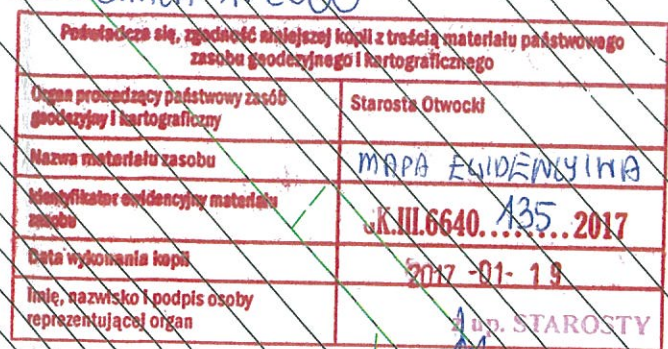 Poświadcza się, zgodność niniejszej kopii z treścią materiału państwowego
zasobu geodezyjnego i kartograficznego
Organ prowadzący państwowy zasób
geodezyjny i kartograficzny
Starosta Otwocki
Nazwa materiału zasobu
MAPA EWIDENCYJNA
Identyfikator ewidencyjny materiału
zasobu
GK.III.6640.135.2017
Data wykonania kopii
2017 -01- 19
Imię, nazwisko i podpis osoby
reprezentującej organ
z up. STAROSTY